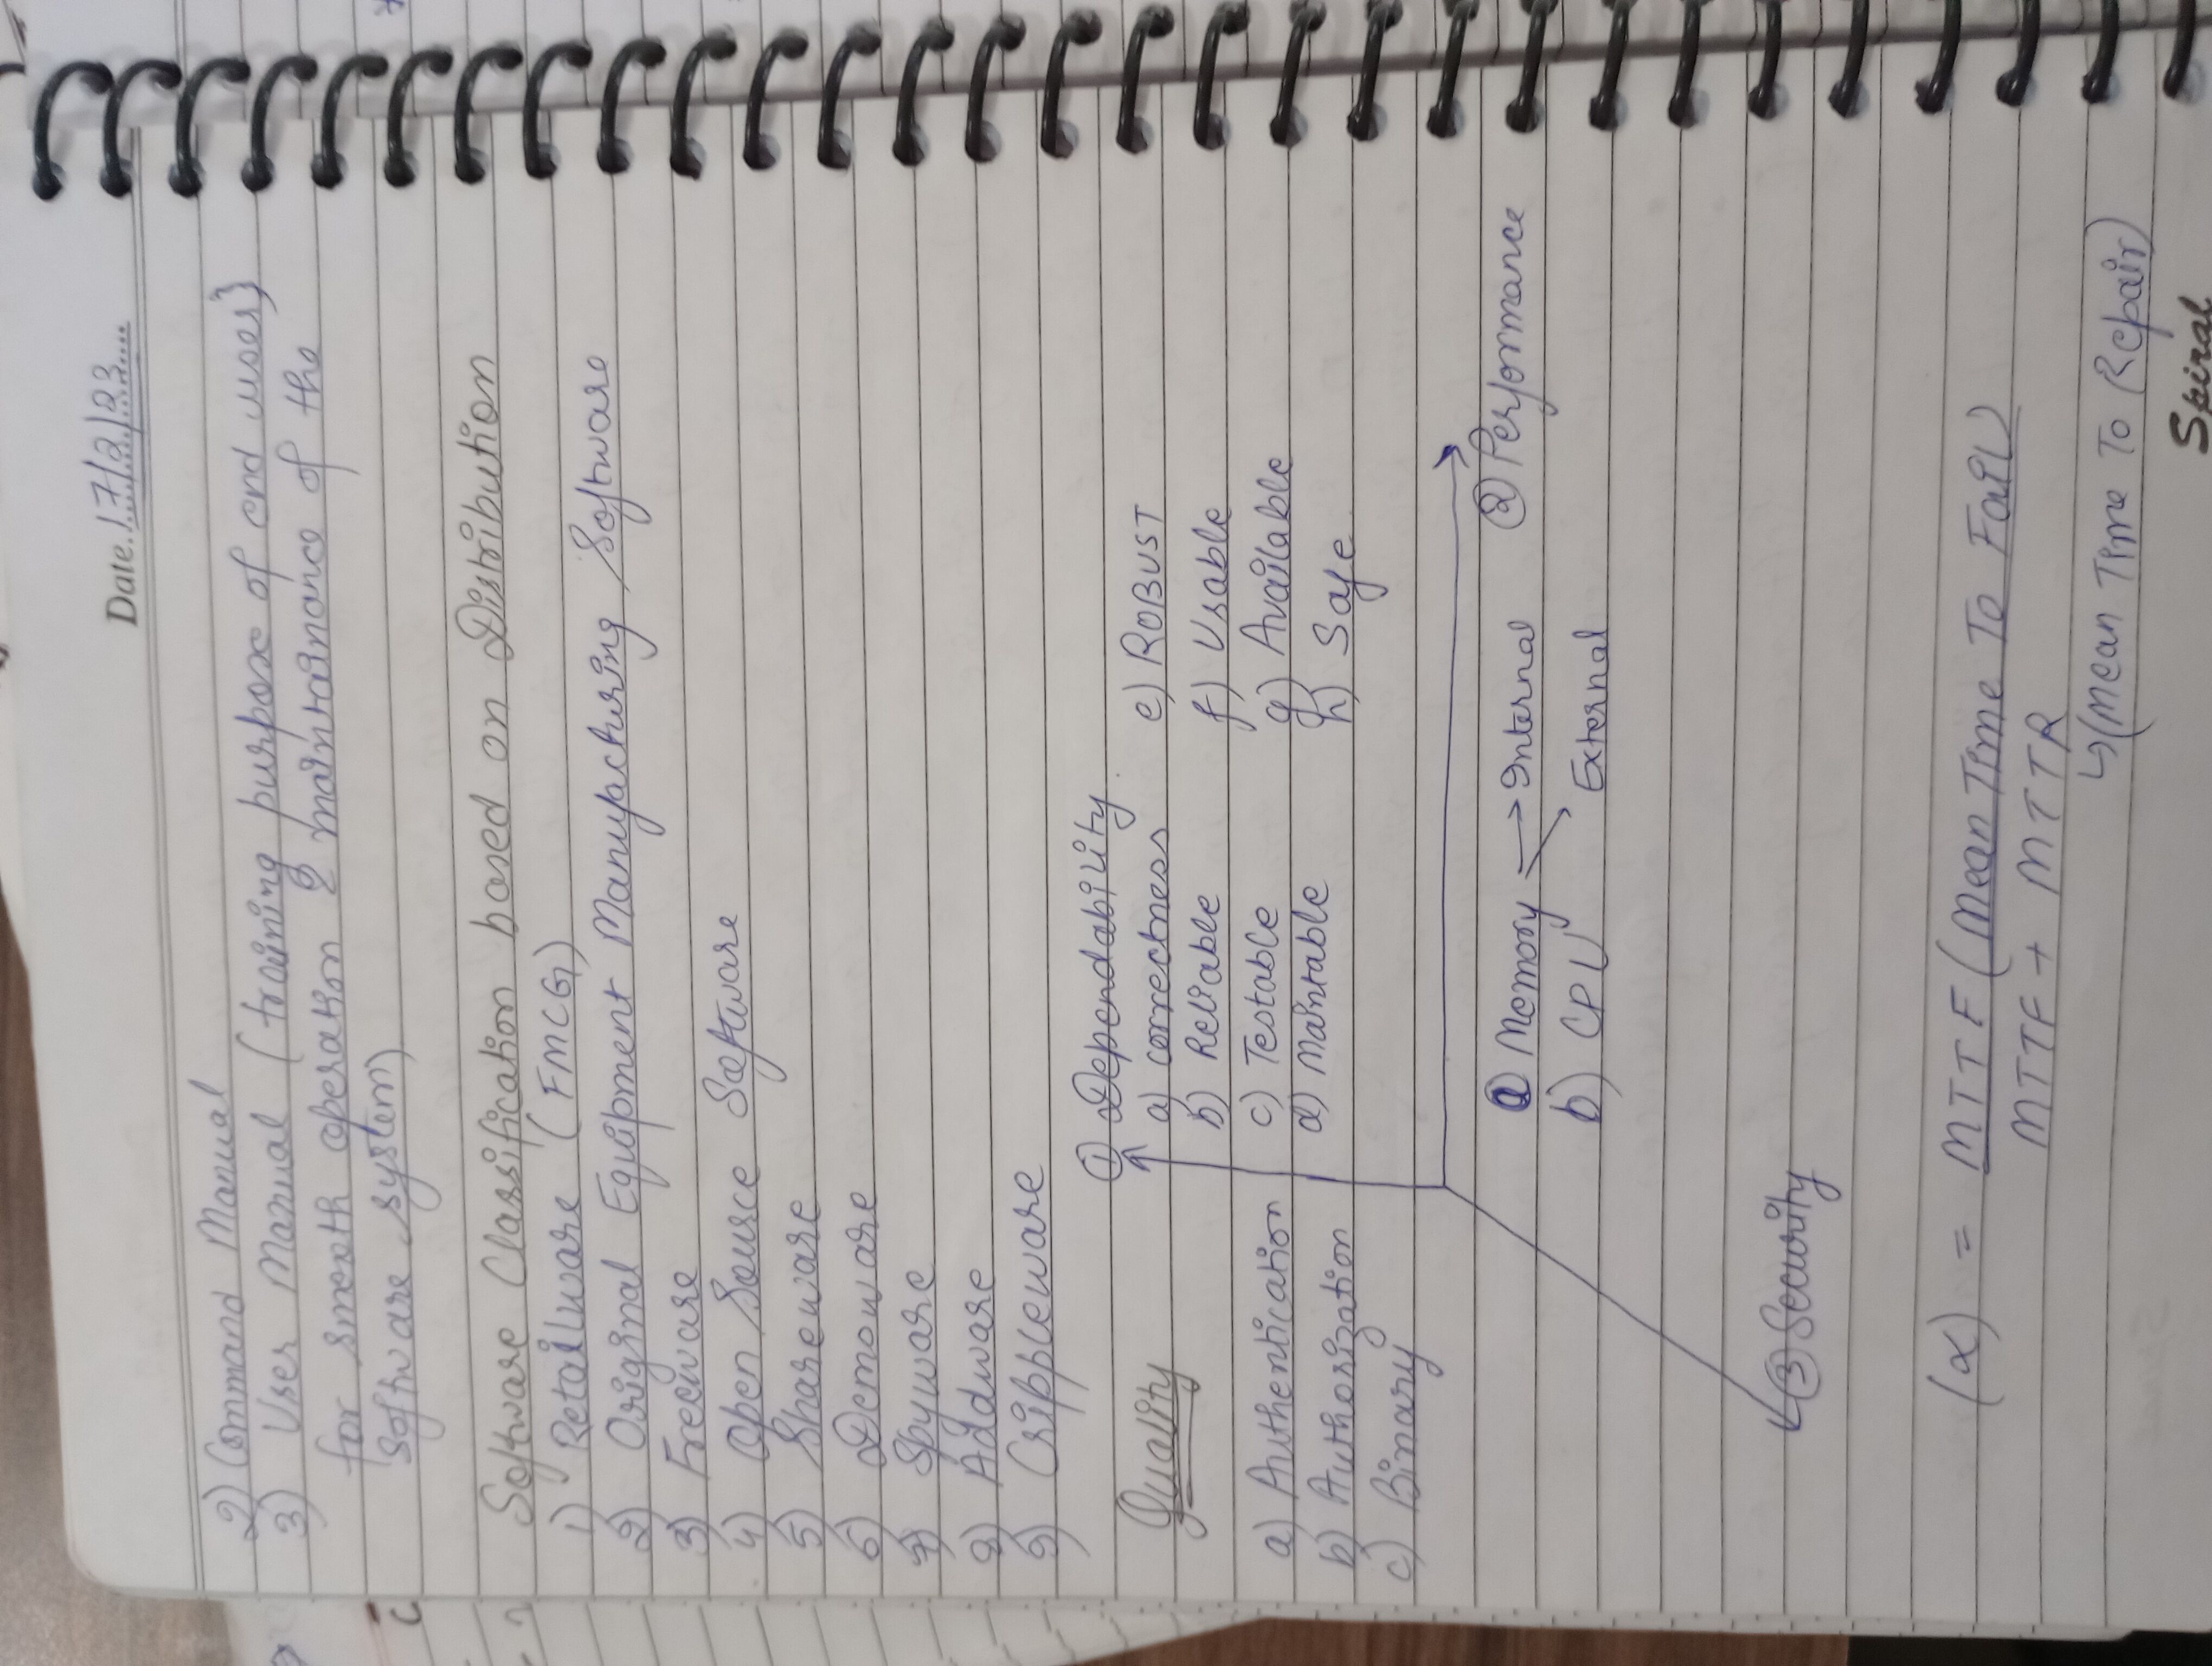 Date. 17/2/23
2) Command Manual
3) User Manual (training purpose of end user}
for smooth operation & maintainance of the
software system)
Software Classification based on Distribution
1) Retailware (FMCG)
2) Original Equipment Manufacturing Software
3) Freeware
4) Open Source Software
5) Shareware
6) Demoware
7) Spyware
8) Addware
9) Crippleware
Quality
① Dependability
a) correctness
b) Reliable
c) Testable
d) Maintable
e) ROBUST
f) Usable
g) Available
h) Safe
a) Authentication
b) Authorization
c) Binary
② Performance
a) Memory → Internal
→ External
b) CPU
③ Security
(α) = MTTF (Mean Time To Fail)
MTTF + MTTR
↳ (Mean Time To Repair)
Spiral